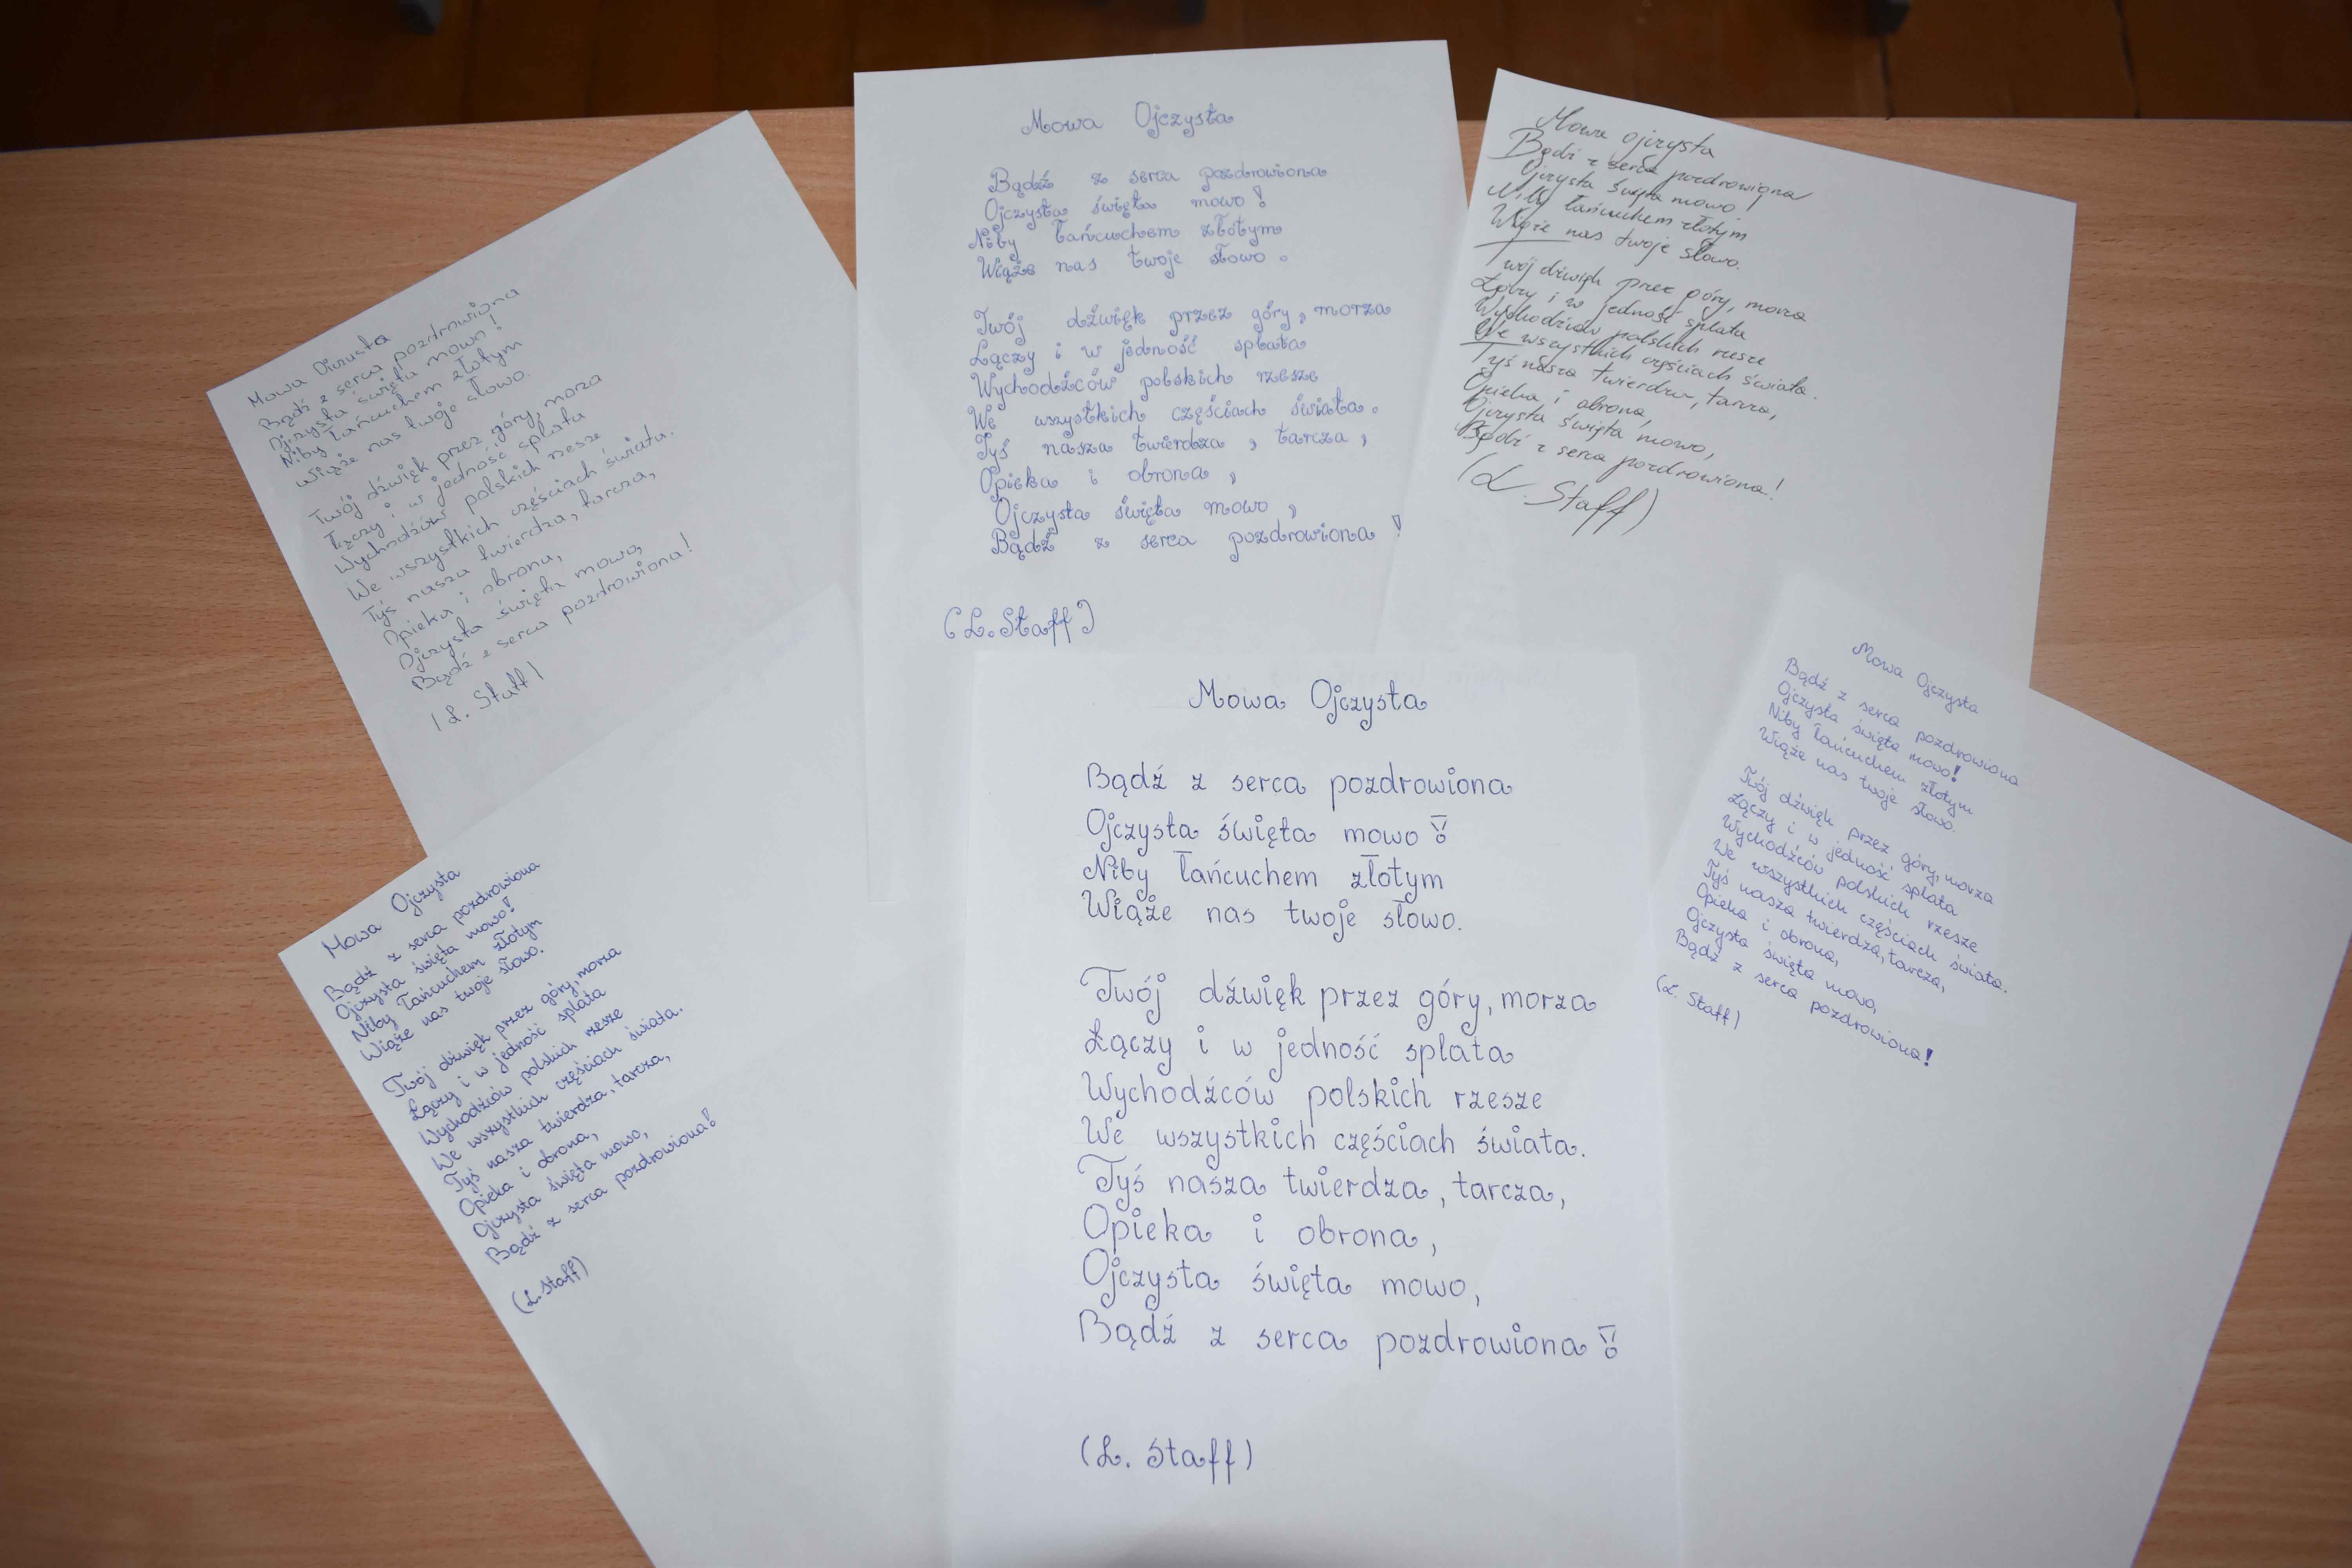 Mowa Ojczysta
Bądź z serca pozdrowiona
Ojczysta święta mowo!
Niby łańcuchem złotym
Wiąże nas twoje słowo.
Twój dźwięk przez góry, morza
Łączy i w jedność splata
Wychodźców polskich rzesze
We wszystkich częściach świata.
Tyś nasza twierdza, tarcza,
Opieka i obrona,
Ojczysta święta mowo,
Bądź z serca pozdrowiona!
(L. Staff)
Mowa Ojczysta
Bądź z serca pozdrowiona
Ojczysta święta mowo!
Niby łańcuchem złotym
Wiąże nas twoje słowo.
Twój dźwięk przez góry, morza
Łączy i w jedność splata
Wychodźców polskich rzesze
We wszystkich częściach świata.
Tyś nasza twierdza, tarcza,
Opieka i obrona,
Ojczysta święta mowo,
Bądź z serca pozdrowiona!
(L. Staff)
Mowa ojczysta
Bądź z serca pozdrowiona
Ojczysta święta mowo!
Niby łańcuchem złotym
Wiąże nas twoje słowo.
Twój dźwięk przez góry, morza
Łączy i w jedność splata
Wychodźców polskich rzesze
We wszystkich częściach świata.
Tyś nasza twierdza, tarcza,
Opieka i obrona,
Ojczysta święta mowo,
Bądź z serca pozdrowiona!
(L. Staff)
Mowa Ojczysta
Bądź z serca pozdrowiona
Ojczysta święta mowo!
Niby łańcuchem złotym
Wiąże nas twoje słowo.
Twój dźwięk przez góry, morza
Łączy i w jedność splata
Wychodźców polskich rzesze
We wszystkich częściach świata.
Tyś nasza twierdza, tarcza,
Opieka i obrona,
Ojczysta święta mowo,
Bądź z serca pozdrowiona!
(L. Staff)
Mowa Ojczysta
Bądź z serca pozdrowiona
Ojczysta święta mowo!
Niby łańcuchem złotym
Wiąże nas twoje słowo.
Twój dźwięk przez góry, morza
Łączy i w jedność splata
Wychodźców polskich rzesze
We wszystkich częściach świata.
Tyś nasza twierdza, tarcza,
Opieka i obrona,
Ojczysta święta mowo,
Bądź z serca pozdrowiona!
(L. Staff)
Mowa Ojczysta
Bądź z serca pozdrowiona
Ojczysta święta mowo!
Niby łańcuchem złotym
Wiąże nas twoje słowo.
Twój dźwięk przez góry, morza
Łączy i w jedność splata
Wychodźców polskich rzesze
We wszystkich częściach świata.
Tyś nasza twierdza, tarcza,
Opieka i obrona,
Ojczysta święta mowo,
Bądź z serca pozdrowiona!
(L. Staff)